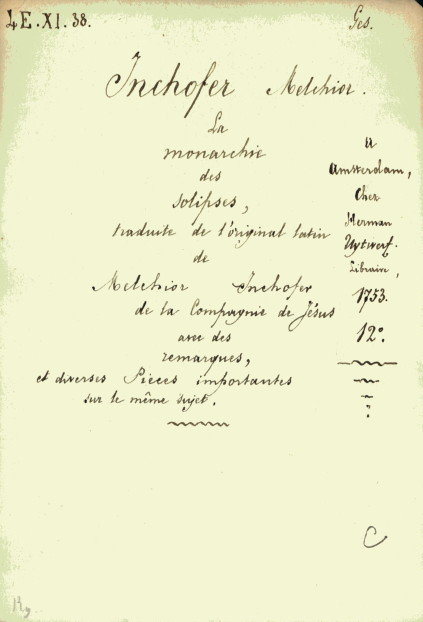 4E.XI.38.
Ges.
Inchofer Melchior.
La
monarchie
des
solipses,
traduite de l'original latin
de
Melchior Inchofer
de la Compagnie de Jésus
avec des
remarques,
et diverses Pièces importantes
sur le même sujet.
A
Amsterdam,
Chez
Herman
Uytwerf.
Libraire,
1753.
12°.
C